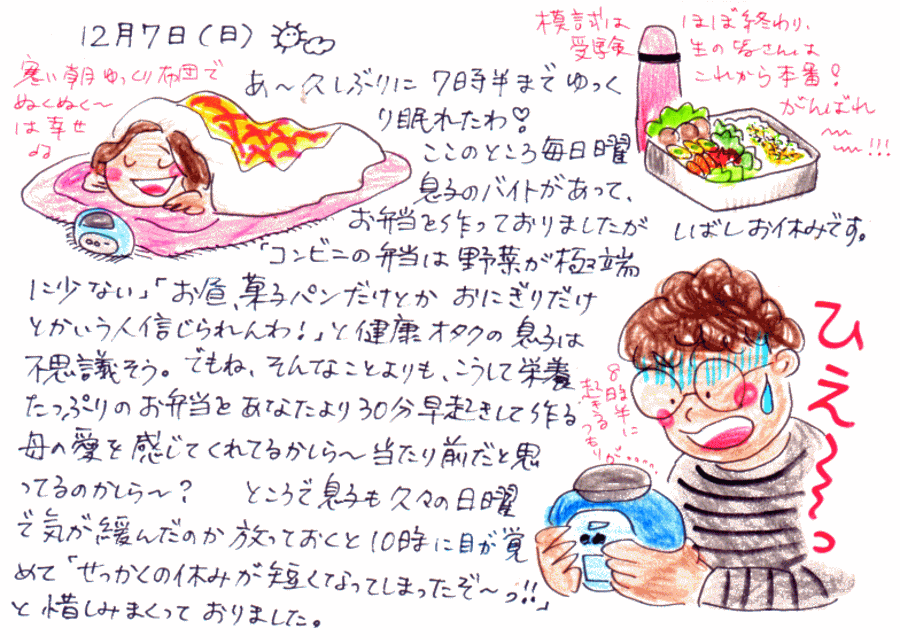 12月7日(日)
寒い朝ゆっくり布団で
ぬくぬく〜
は幸せ
よ
あ〜久しぶりに 7時半までゆっく
り眠れたわ♡
ここのところ毎日曜
息子のバイトがあって、
お弁当を作っておりましたが
模試は
受験
ほぼ終わり、
生の皆さんは
これから本番!
がんばれ
〜〜!!!
しばしお休みです。
「コンビニの弁当は野菜が極端
に少ない」「お昼、菓子パンだけとか おにぎりだけ
とかいう人信じられんわ!」と健康オタクの息子は
不思議そう。でもね、そんなことよりも、こうして栄養
たっぷりのお弁当をあなたより30分早起きして作る
母の愛を感じてくれてるかしら〜当たり前だと思
ってるのかしら〜? ところで息子も久々の日曜
で気が緩んだのか 放っておくと10時に目が覚
めて「せっかくの休みが短くなってしまったぞ〜っ!!」
と惜しみまくっておりました。
8時半に
起きる
つもりが……
ひえ〜〜っ